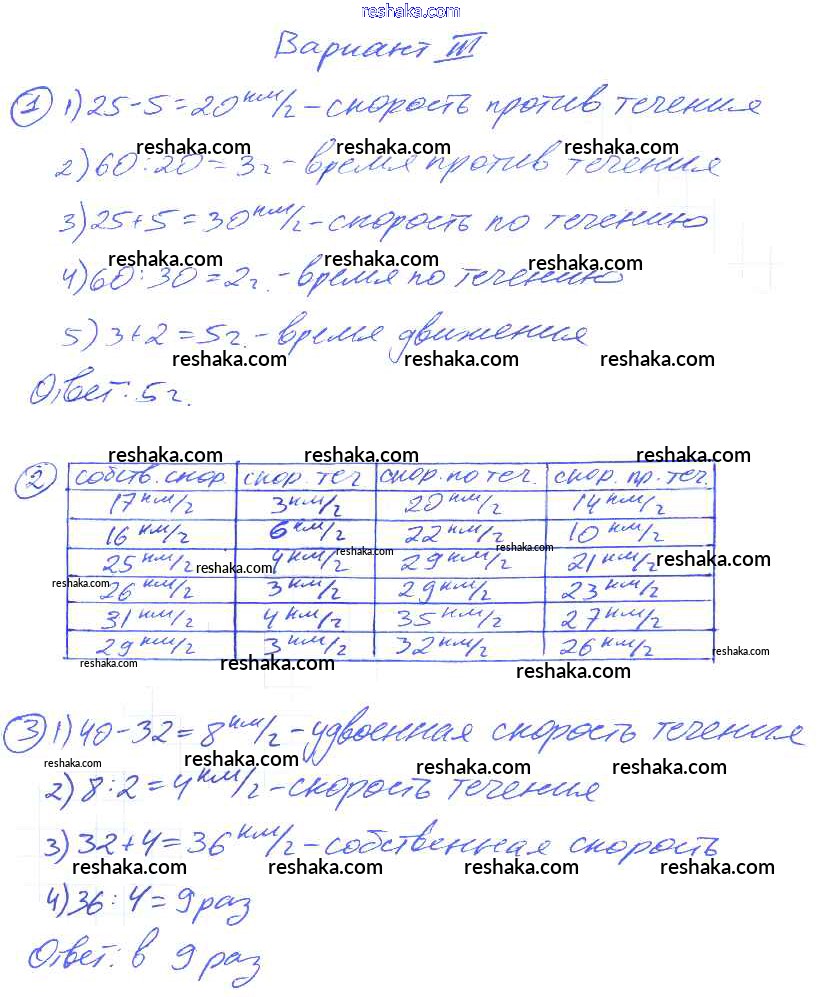 reshaka.com
Вариант III
1 1) 25 - 5 = 20 км/г - скорость против течения
reshaka.com reshaka.com reshaka.com
2) 60 : 20 = 3г - время против течения
3) 25 + 5 = 30 км/г - скорость по течению
reshaka.com reshaka.com reshaka.com
4) 60 : 30 = 2г. - время по течению
5) 3 + 2 = 5г. - время движения
reshaka.com reshaka.com reshaka.com
Ответ: 5г.
reshaka.com reshaka.com reshaka.com
2 собств. скор. скор. теч скор. по теч. скор. пр. теч.
17 км/г 3 км/г 20 км/г 14 км/г
16 км/г 6 км/г 22 км/г 10 км/г
reshaka.com reshaka.com
25 км/г 4 км/г 29 км/г 21 км/г
reshaka.com reshaka.com
reshaka.com
26 км/г 3 км/г 29 км/г 23 км/г
31 км/г 4 км/г 35 км/г 27 км/г
29 км/г 3 км/г 32 км/г 26 км/г
reshaka.com reshaka.com reshaka.com reshaka.com
3 1) 40 - 32 = 8 км/г - удвоенная скорость течения
reshaka.com reshaka.com reshaka.com reshaka.com
2) 8 : 2 = 4 км/г - скорость течения
3) 32 + 4 = 36 км/г - собственная скорость
reshaka.com reshaka.com reshaka.com reshaka.com
4) 36 : 4 = 9 раз
Ответ: в 9 раз